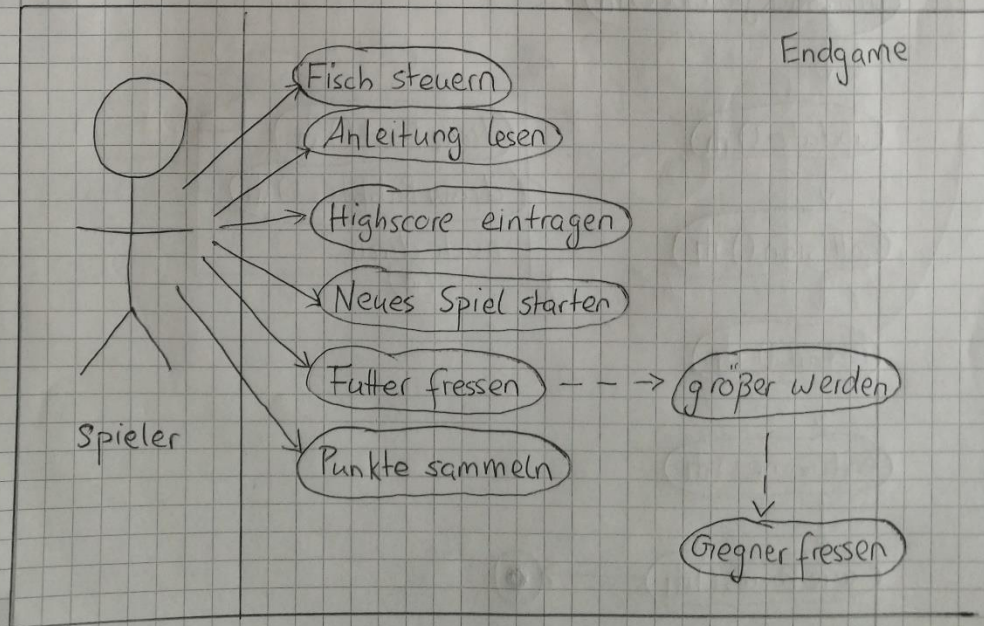 Endgame
Fisch steuern
Anleitung lesen
Highscore eintragen
Neues Spiel starten
Futter fressen
größer werden
Spieler
Punkte sammeln
Gegner fressen